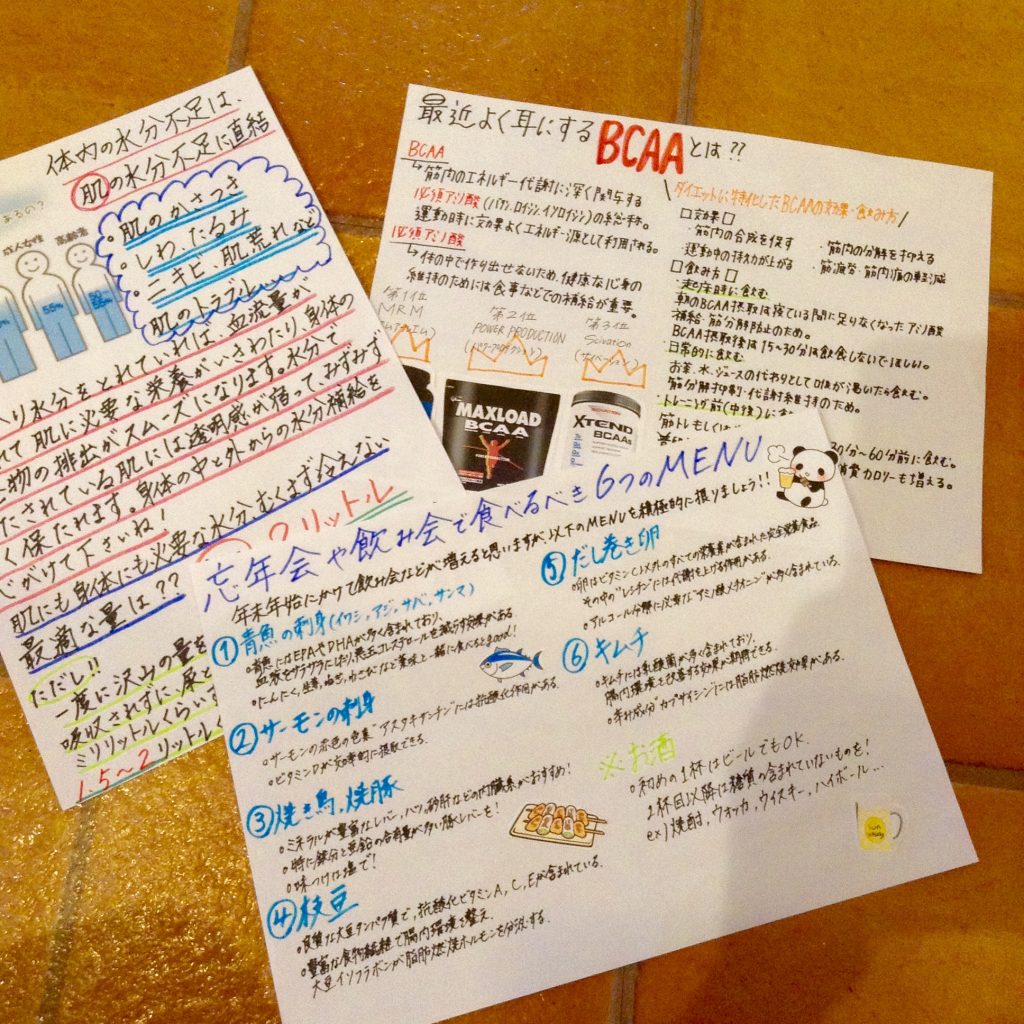 体内の水分不足は、
肌の水分不足に直結
あるの?
成人女性
高齢者
55%
・肌のかさつき
・しわ、たるみ
・ニキビ、肌荒れなど
肌のトラブル
水分をとれていれば、血流量が
肌に必要な栄養がいきわたり、身体の
物の排出がスムーズになります。水分で
たされている肌には透明感が宿って、みずみず
く保たれます。身体の中と外からの水分補給を
がけて下さいね!
肌にも身体にも必要な水分、むくまず冷えない
最適な量は??
リットル
ただし!!
一度に沢山の量を
吸収されずに、尿と
ミリリットルくらい
1.5〜2リットル
最近よく耳にするBCAAとは??
BCAA
→筋肉のエネルギー代謝に深く関与する
必須アミノ酸(バリン、ロイシン、イソロイシン)の総称。
運動時に効果よくエネルギー源として利用される。
必須アミノ酸
→体の中で作り出せないため、健康な心身の
維持のためには食事などでの補給が重要。
第1位
MRM
第2位
POWER PRODUCTION
(パワープロダクション)
第3位
MAXLOAD
BCAA
XTEND
BCAAs
\ダイエットに特化したBCAAの効果・飲み方/
□効果□
・筋肉の合成を促す
・筋肉の分解を抑える
・運動中の持久力が上がる
・筋疲労・筋肉痛の軽減
□飲み方□
・起床時に飲む
朝のBCAA摂取は寝ている間に足りなくなったアミノ酸
補給・筋分解防止のため。
BCAA摂取後は15〜30分は飲食しないでほしい。
・日常的に飲む
お茶、水、ジュースの代わりとして口が渇いたら飲む。
筋分解抑制・代謝維持のため。
・トレーニング前(中後)に
筋トレもしくは
30分〜60分前に飲む。
消費カロリーも増える。
忘年会や飲み会で食べるべき6つのMENU
年末年始にかけて飲み会などが増えると思いますが、以下のMENUを積極的に摂りましょう!!
①青魚の刺身(イワシ、アジ、サバ、サンマ)
・青魚にはEPAやDHAが多く含まれており、
血液をサラサラにしたり、悪玉コレステロールを減らす効果がある
・にんにく、生姜、ねぎ、わさびなど薬味と一緒に食べるとgood!
②サーモンの刺身
・サーモンの赤色の色素"アスタキサンチン"には抗酸化作用がある。
・ビタミンDが効率的に摂取できる。
③焼き鳥、焼豚
○ミネラルが豊富なレバー、ハツ、砂肝などの内臓系がおすすめ!
○特に鉄分と亜鉛の含有量が多い豚レバーを!
○味つけは塩で!
④枝豆
○良質な大豆タンパク質で、抗酸化ビタミンA,C,Eが含まれている。
○豊富な食物繊維で腸内環境を整え、
大豆イソフラボンが脂肪燃焼ホルモンを分泌する。
⑤だし巻き卵
○卵はビタミンC以外のすべての栄養素が含まれた完全栄養食品
その中の"レシチン"には代謝を上げる作用がある。
○アルコール分解に必要な"アミノ酸メチオニン"が多く含まれている。
⑥キムチ
○キムチには乳酸菌が多く含まれており、
腸内環境を改善する効果が期待できる。
○辛味成分"カプサイシン"には脂肪燃焼効果がある。
※お酒
○初めの1杯はビールでもOK、
2杯目以降は糖質の含まれていないものを!
ex)焼酎、ウォッカ、ウイスキー、ハイボール…